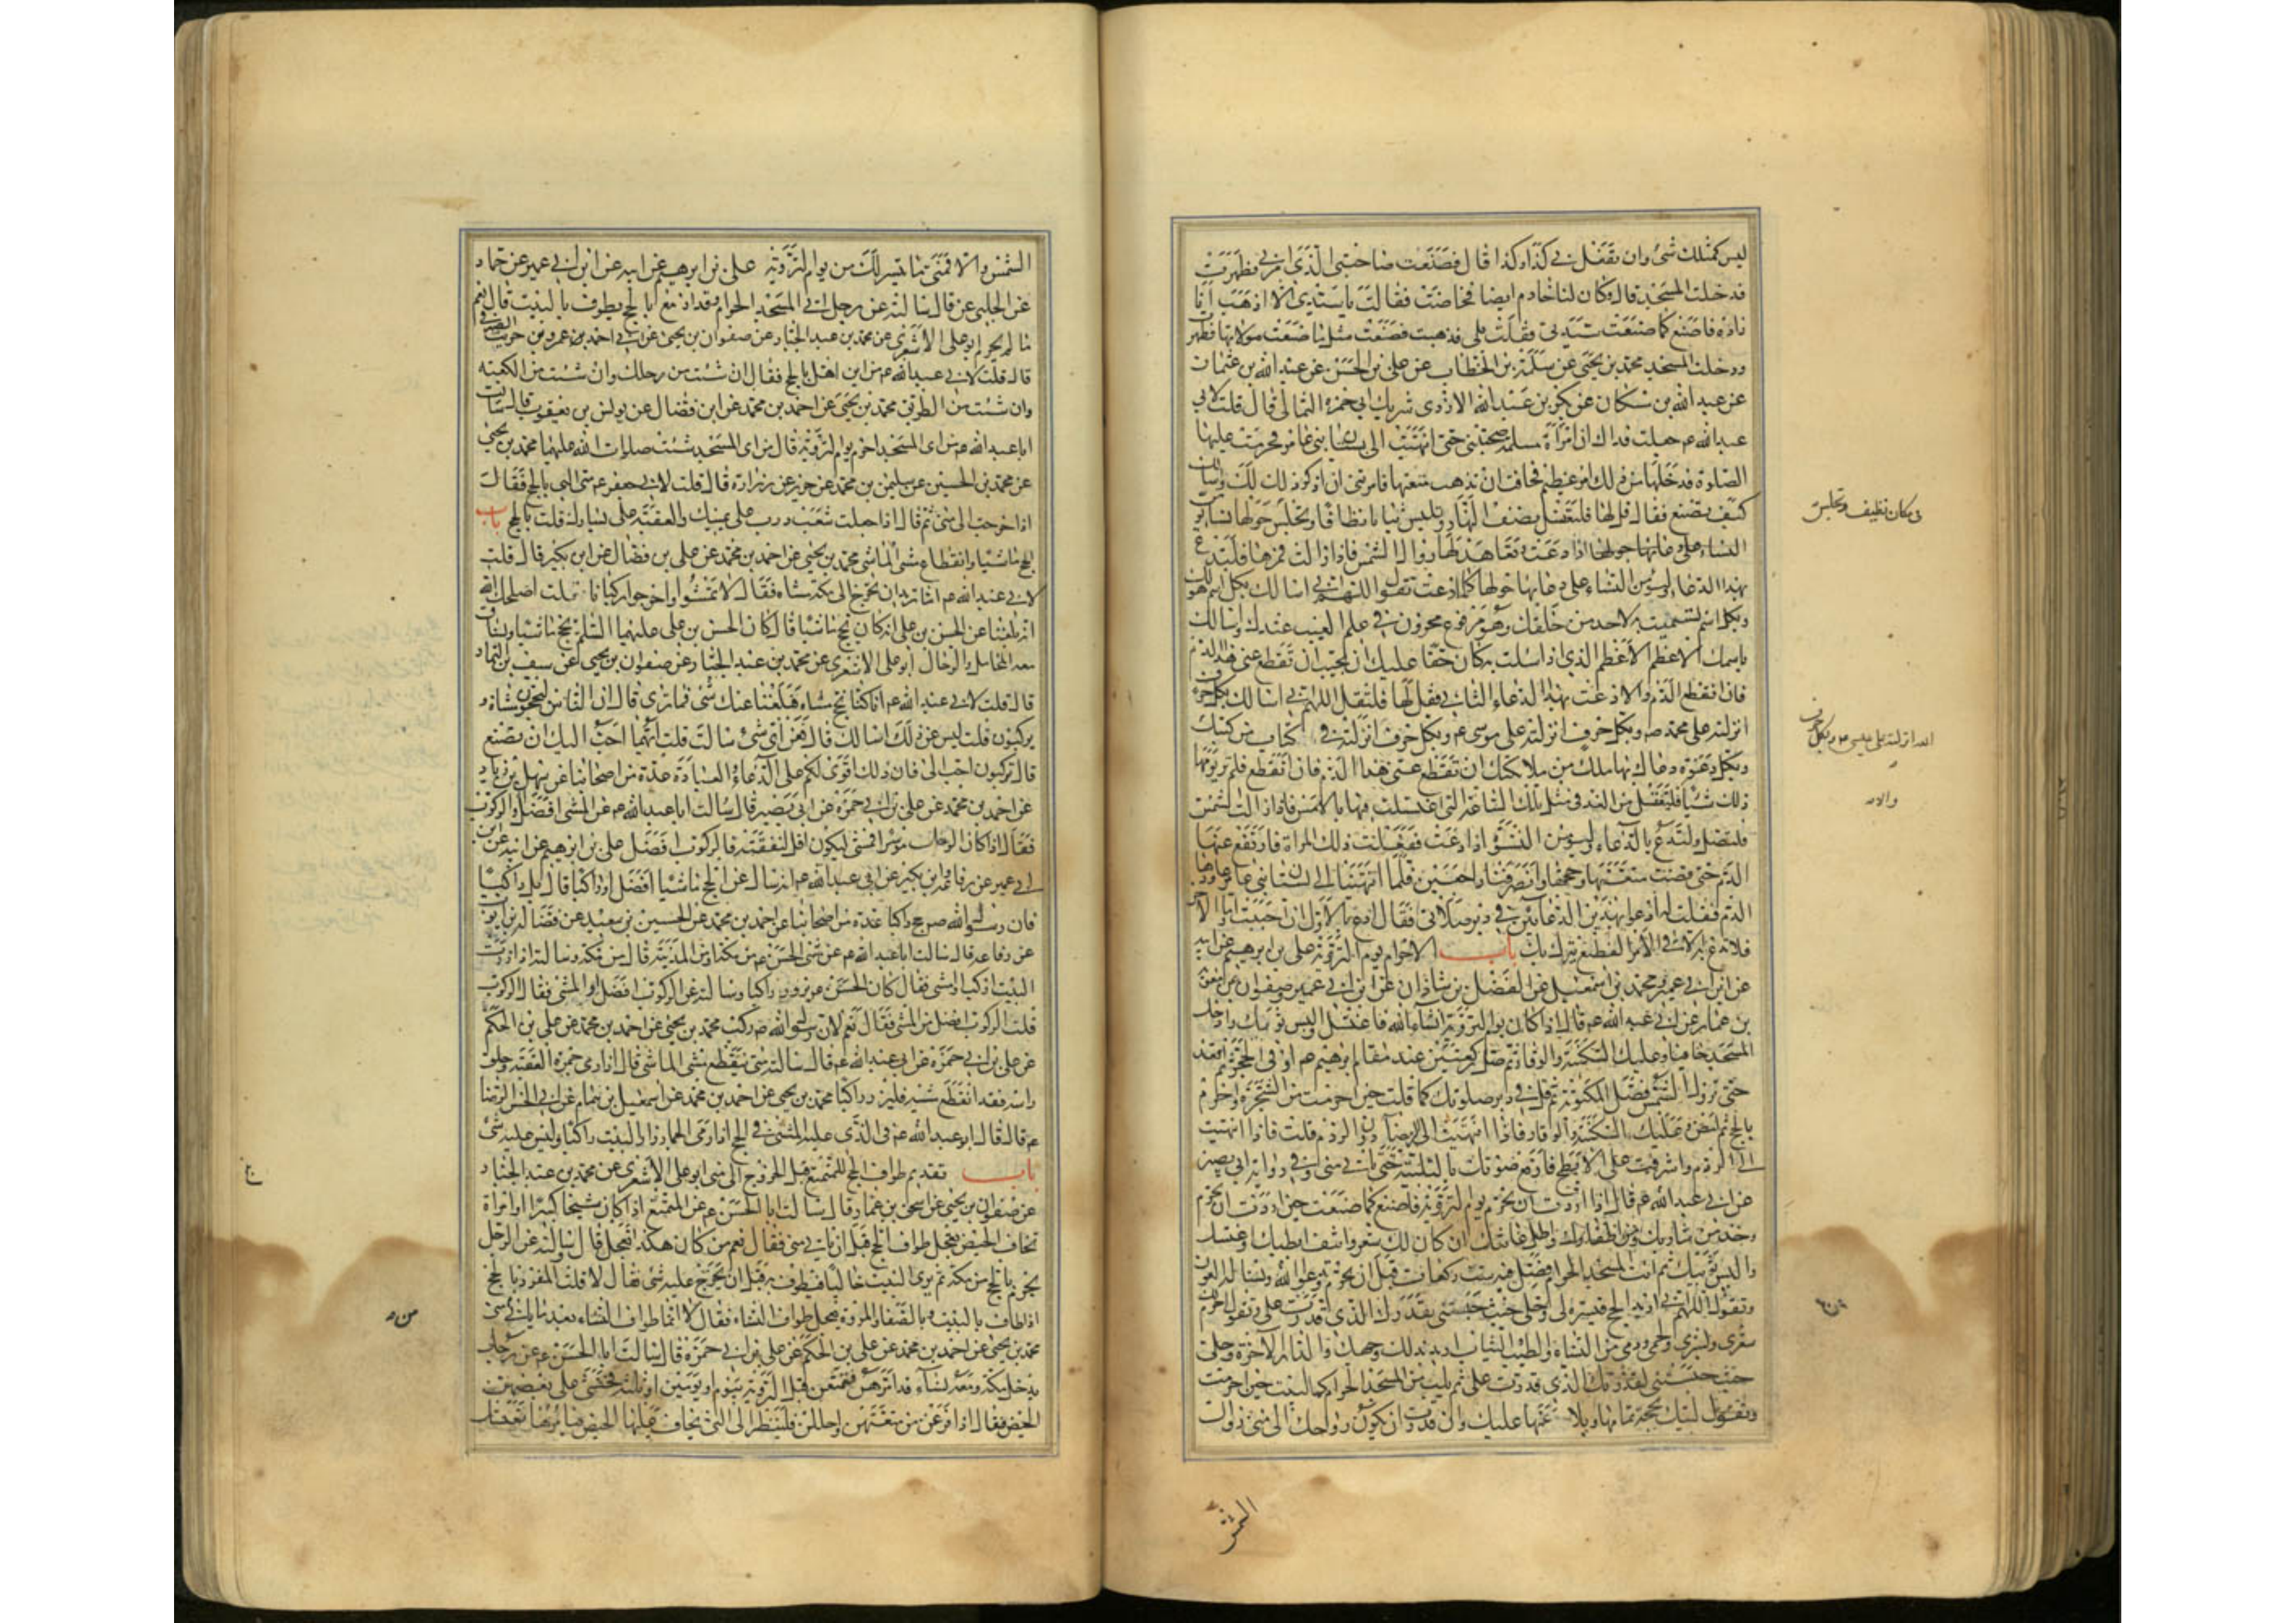 ليس كمثلك شئ وان تفعل بي كذا وكذا قال فصنعت صاحبتي الذي امرني فطهرت
قد خلت المسجد قال وكان لنا خادم ايضا فحاضت فقالت يا سيدي الا اذهب انا
زادة فاصنع كما صنعت سيدتي فقلت بلى فذهبت فصنعت مثل ما صنعت مولاتها فطهرت
ودخلت المسجد محمد بن يحيى عن سلمة بن الخطاب عن علي بن الحسن عن
عن عبد الله بن عن بكر بن عبد الله الازدي شريك ابي حمزة الثمالي قال قلت لابي
عبد الله ع جعلت فداك ان امراة مسلمة صحبتني حتى انتهيت الى بستان بني عامر فحرمت عليها
الصلوة فدخلها من ذلك امر عظيم فخافت ان تذهب متعتها فامرتني ان اذكر ذلك لك واسالك
كيف تصنع فقال قل لها فلتغتسل نصف النهار وتلبس ثيابا نظافا وتجلس حولها نساء
النساء على دعائها حولها اذا دعت وتعاهد لها زوال الشمس فاذا زالت فمرها فلتدع
بهذا الدعاء وليؤمن النساء على دعائها حولها كلما دعت تقول اللهم اني اسالك بكل اسم هو لك
وبكل اسم تسميت به لاحد من خلقك وهو مرفوع مخزون في علم الغيب عندك واسالك
باسمك الاعظم الاعظم الذي اذا سئلت به كان حقا عليك ان تجيب ان تقطع عني هذا الدم
فان انقطع الدم والا دعت بهذا الدعاء الثاني فقل لها فلتقل اللهم اني اسالك بكل حرف
انزلته على محمد ص وبكل حرف انزلته على موسى ع وبكل حرف انزلته في كتاب من كتبك
وبكل دعوة دعاك بها ملك من ملائكتك ان تقطع عني هذا الدم فان انقطع فلم تر يومها
ذلك شيئا فلتغتسل من الغد في مثل تلك الساعة التي اغتسلت فيها بالامس فاذا زالت الشمس
فلتصل ولتدع بالدعاء وليؤمن النسوة اذا دعت ففعلت ذلك المراة فارتفع عنها
الدم حتى قضت متعتها وحجها وانصرفنا راجعين فلما انتهينا الى بستان بني عامر عاودها
الدم فقلت له ادعو بهذين الدعائين في دبر صلاتي فقال ادع بالاول ان احببت واما الاخر
فلا تدع به الا في الامر الفظيع ينزل بك باب الاحرام يوم التروية علي بن ابرهيم عن ابيه
عن ابن ابي عمير ومحمد بن اسمعيل عن الفضل بن شاذان عن ابن ابي عمير وصفوان عن معوية
بن عمار عن ابي عبد الله ع قال اذا كان يوم التروية انشاء الله فاغتسل والبس ثوبيك وادخل
المسجد حافيا وعليك السكينة والوقار ثم صل ركعتين عند مقام ابرهيم ع او في الحجر ثم اقعد
حتى تزول الشمس فصل المكتوبة ثم قل في دبر صلوتك كما قلت حين احرمت من الشجرة واحرم
بالحج ثم امض وعليك السكينة والوقار فاذا انتهيت الى الرقطاء دون الردم فلب فاذا انتهيت
الى الردم واشرفت على الابطح فارفع صوتك بالتلبية حتى تاتي منى وفي رواية ابي بصير
عن ابي عبد الله ع قال اذا اردت ان تحرم يوم التروية فاصنع كما صنعت حين اردت ان تحرم
وخذ من شاربك ومن اظفارك واطل عانتك ان كان لك شعر وانتف ابطيك واغتسل
والبس ثوبيك ثم ائت المسجد الحرام فصل فيه ست ركعات قبل ان تحرم وتدعو الله وتساله العون
وتقول اللهم اني اريد الحج فيسره لي وحلني حيث حبستني بقدرك الذي قدرت علي وتقول احرم لك
شعري وبشري ولحمي ودمي من النساء والطيب والثياب اريد بذلك وجهك والدار الاخرة وحلني
حيث حبستني لقدرك الذي قدرت علي ثم تلب من المسجد الحرام كما لبيت حين احرمت
وتقول لبيك بحجة تمامها وبلاغها عليك وان قدرت ان يكون رواحك الى منى زوال
في مكان نظيف وتجلس
انزلته على عيسى ع وبكل حرف
والا
الشمس
الشمس والا فمتى ما تيسر لك من يوم التروية علي بن ابرهيم عن ابيه عن ابن ابي عمير عن حماد
عن الحلبي عن قال سالته عن رجل اتى المسجد الحرام وقد ازمع بالحج يطوف بالبيت قال نعم
ما لم يحرم ابو علي الاشعري عن محمد بن عبد الجبار عن صفوان بن يحيى عن ابي احمد عن عمرو بن حريث الصيرفي
قال قلت لابي عبد الله ع من اين اهل بالحج فقال ان شئت من رحلك وان شئت من الكعبة
وان شئت من الطريق محمد بن يحيى عن احمد بن محمد عن ابن فضال عن يونس بن يعقوب قال سالت
ابا عبد الله ع من اي المسجد احرم يوم التروية قال من اي المسجد شئت صلوات الله عليهما محمد بن يحيى
عن محمد بن الحسين عن سليمن بن محمد عن حريز عن زرارة قال قلت لابي جعفر ع متى البي بالحج فقال
اذا خرجت الى منى ثم قال اذا جعلت شعب درب على يمينك والعقبة على يسارك فلب بالحج باب
الحج ماشيا وانقطاع مشي الماشي محمد بن يحيى عن احمد بن محمد عن علي بن فضال عن ابن بكير قال قلت
لابي عبد الله ع انا نريد ان نخرج الى مكة مشاة فقال لا تمشوا واخرجوا ركبانا قلت اصلحك الله
انه بلغنا عن الحسن بن علي انه كان يحج ماشيا قال كان الحسن بن علي عليهما السلم يحج ماشيا ويساق
معه المحامل والرحال ابو علي الاشعري عن محمد بن عبد الجبار عن صفوان بن يحيى عن سيف التمار
قال قلت لابي عبد الله ع انا كنا نحج مشاة فبلغنا عنك شئ فما ترى قال ان الناس ليحجون مشاة و
يركبون قلت ليس عن ذلك اسالك قال فعن اي شئ سالت قلت ايهما احب اليك ان نصنع
قال تركبون احب الى فان ذلك اقوى لكم على الدعاء والعبادة عدة من اصحابنا عن سهل بن زياد
عن احمد بن محمد عن علي بن ابي حمزة عن ابي بصير قال سالت ابا عبد الله ع عن المشي افضل او الركوب
فقال اذا كان الرجل موسرا فمشى ليكون اقل لنفقته فالركوب افضل علي بن ابرهيم عن ابيه عن ابن
ابي عمير عن رفاعة وابن بكير عن ابي عبد الله ع انه سال عن الحج ماشيا افضل او راكبا قال بل راكبا
فان رسول الله ص حج راكبا عدة من اصحابنا عن احمد بن محمد عن الحسين بن سعيد عن فضالة بن ايوب
عن رفاعة قال سالت ابا عبد الله ع عن مشي الحسن ع من مكة او من المدينة قال من مكة وسالته اذا زرت
البيت اركب او امشي فقال كان الحسن ع يزور راكبا وسالته عن الركوب افضل او المشي فقال الركوب
قلت الركوب افضل من المشي فقال نعم لان رسول الله ص ركب محمد بن يحيى عن احمد بن محمد عن علي بن الحكم
عن علي بن ابي حمزة عن ابي عبد الله ع قال سالته متى ينقطع مشي الماشي قال اذا رمى جمرة العقبة وحلق
راسه فقد انقطع مشيه فليزر راكبا محمد بن يحيى عن احمد بن محمد عن اسمعيل بن همام عن ابي الحسن الرضا
ع قال قال ابو عبد الله ع في الذي عليه المشي في الحج اذا رمى الجمار زار البيت راكبا وليس عليه شئ
باب تقديم طواف الحج للمتمتع قبل الخروج الى منى ابو علي الاشعري عن محمد بن عبد الجبار
عن صفوان بن يحيى عن اسحق بن عمار قال سالت ابا الحسن ع عن المتمتع اذا كان شيخا كبيرا او امراة
تخاف الحيض يعجل طواف الحج قبل ان ياتي منى فقال نعم من كان هكذا فيعجل قال وسالته عن الرجل
يحرم بالحج من مكة ثم يرى البيت خاليا فيطوف به قبل ان يخرج عليه شئ فقال لا قلت المفرد بالحج
اذا طاف بالبيت وبالصفا والمروة يعجل طواف النساء فقال لا انما طواف النساء بعد ما ياتي منى
محمد بن يحيى عن احمد بن محمد عن علي بن الحكم عن علي بن ابي حمزة قال سالت ابا الحسن ع عن رجل
يدخل مكة ومعه نساء قد امرهن فتمتعن قبل التروية بيوم او يومين او ثلثة فخشى على بعضهن
الحيض فقال اذا فرغن من متعتهن واحللن فلينظر الى التي يخاف عليها الحيض فيامرها تغتسل